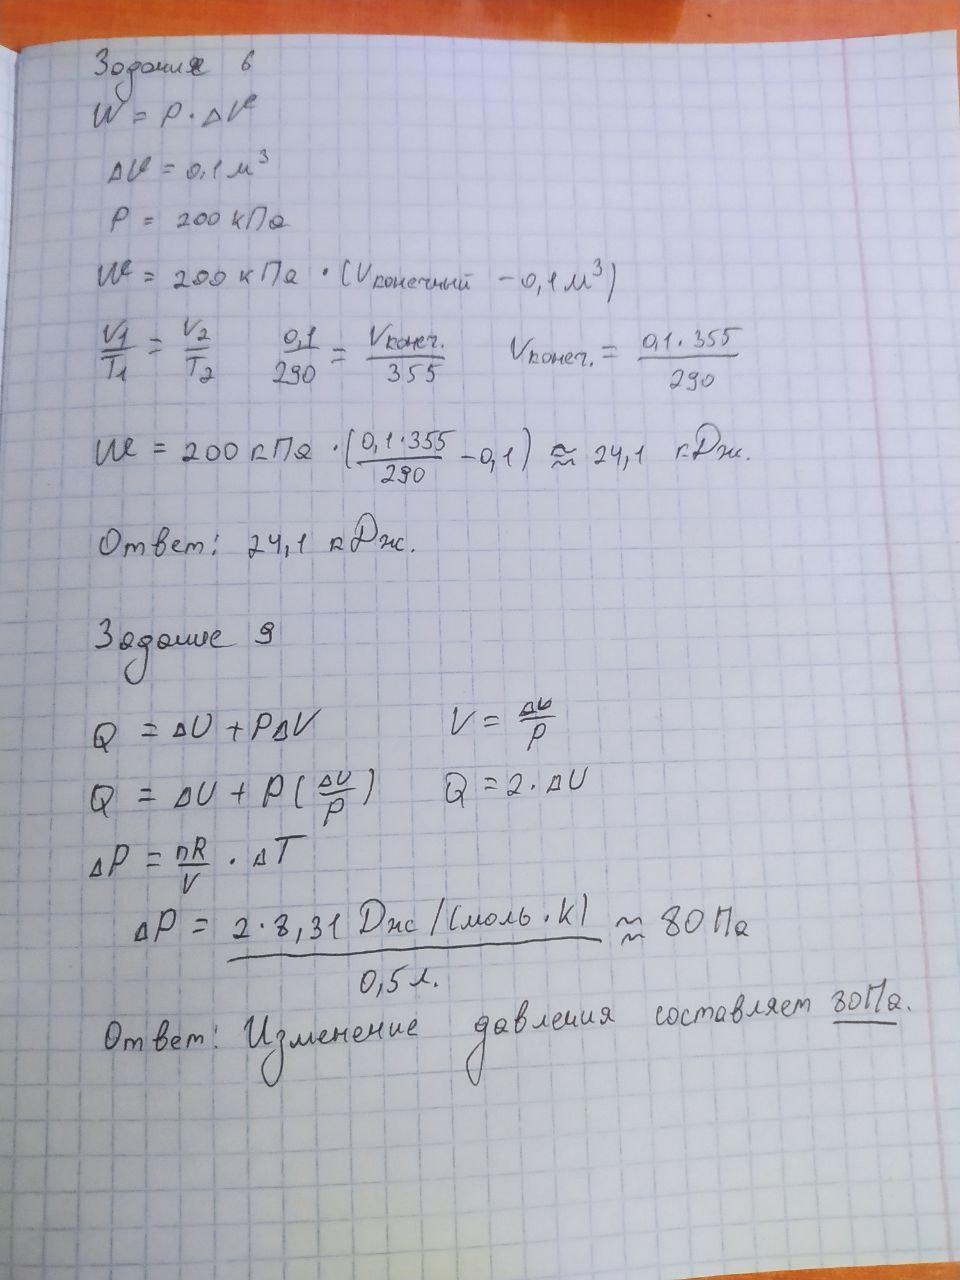 Задание 6
W = P · ΔV
ΔV = 0,1 м³
P = 200 кПа
W = 200 кПа · (Vконечный - 0,1 м³)
V1/T1 = V2/T2   0,1/290 = Vконеч./355   Vконеч. = 0,1·355/290
W = 200 кПа · (0,1·355/290 - 0,1) ≈ 24,1 кДж.
Ответ: 24,1 кДж.
Задание 9
Q = ΔU + PΔV   V = ΔU/P
Q = ΔU + P(ΔU/P)   Q = 2·ΔU
ΔP = nR/V · ΔT
ΔP = 2·8,31 Дж/(моль·К)/0,5 л. ≈ 80 Па
Ответ: Изменение давления составляет 80Па.